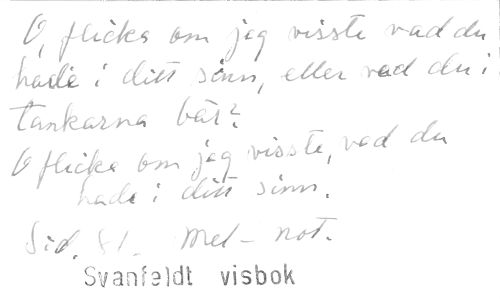 O, flicka om jag visste vad du
hade i ditt sinn, eller vad du i
tankarna bär?
O flicka om jag visste, vad du
hade i ditt sinn.
Sid. 81. Mel- not.
Svanfeldt visbok